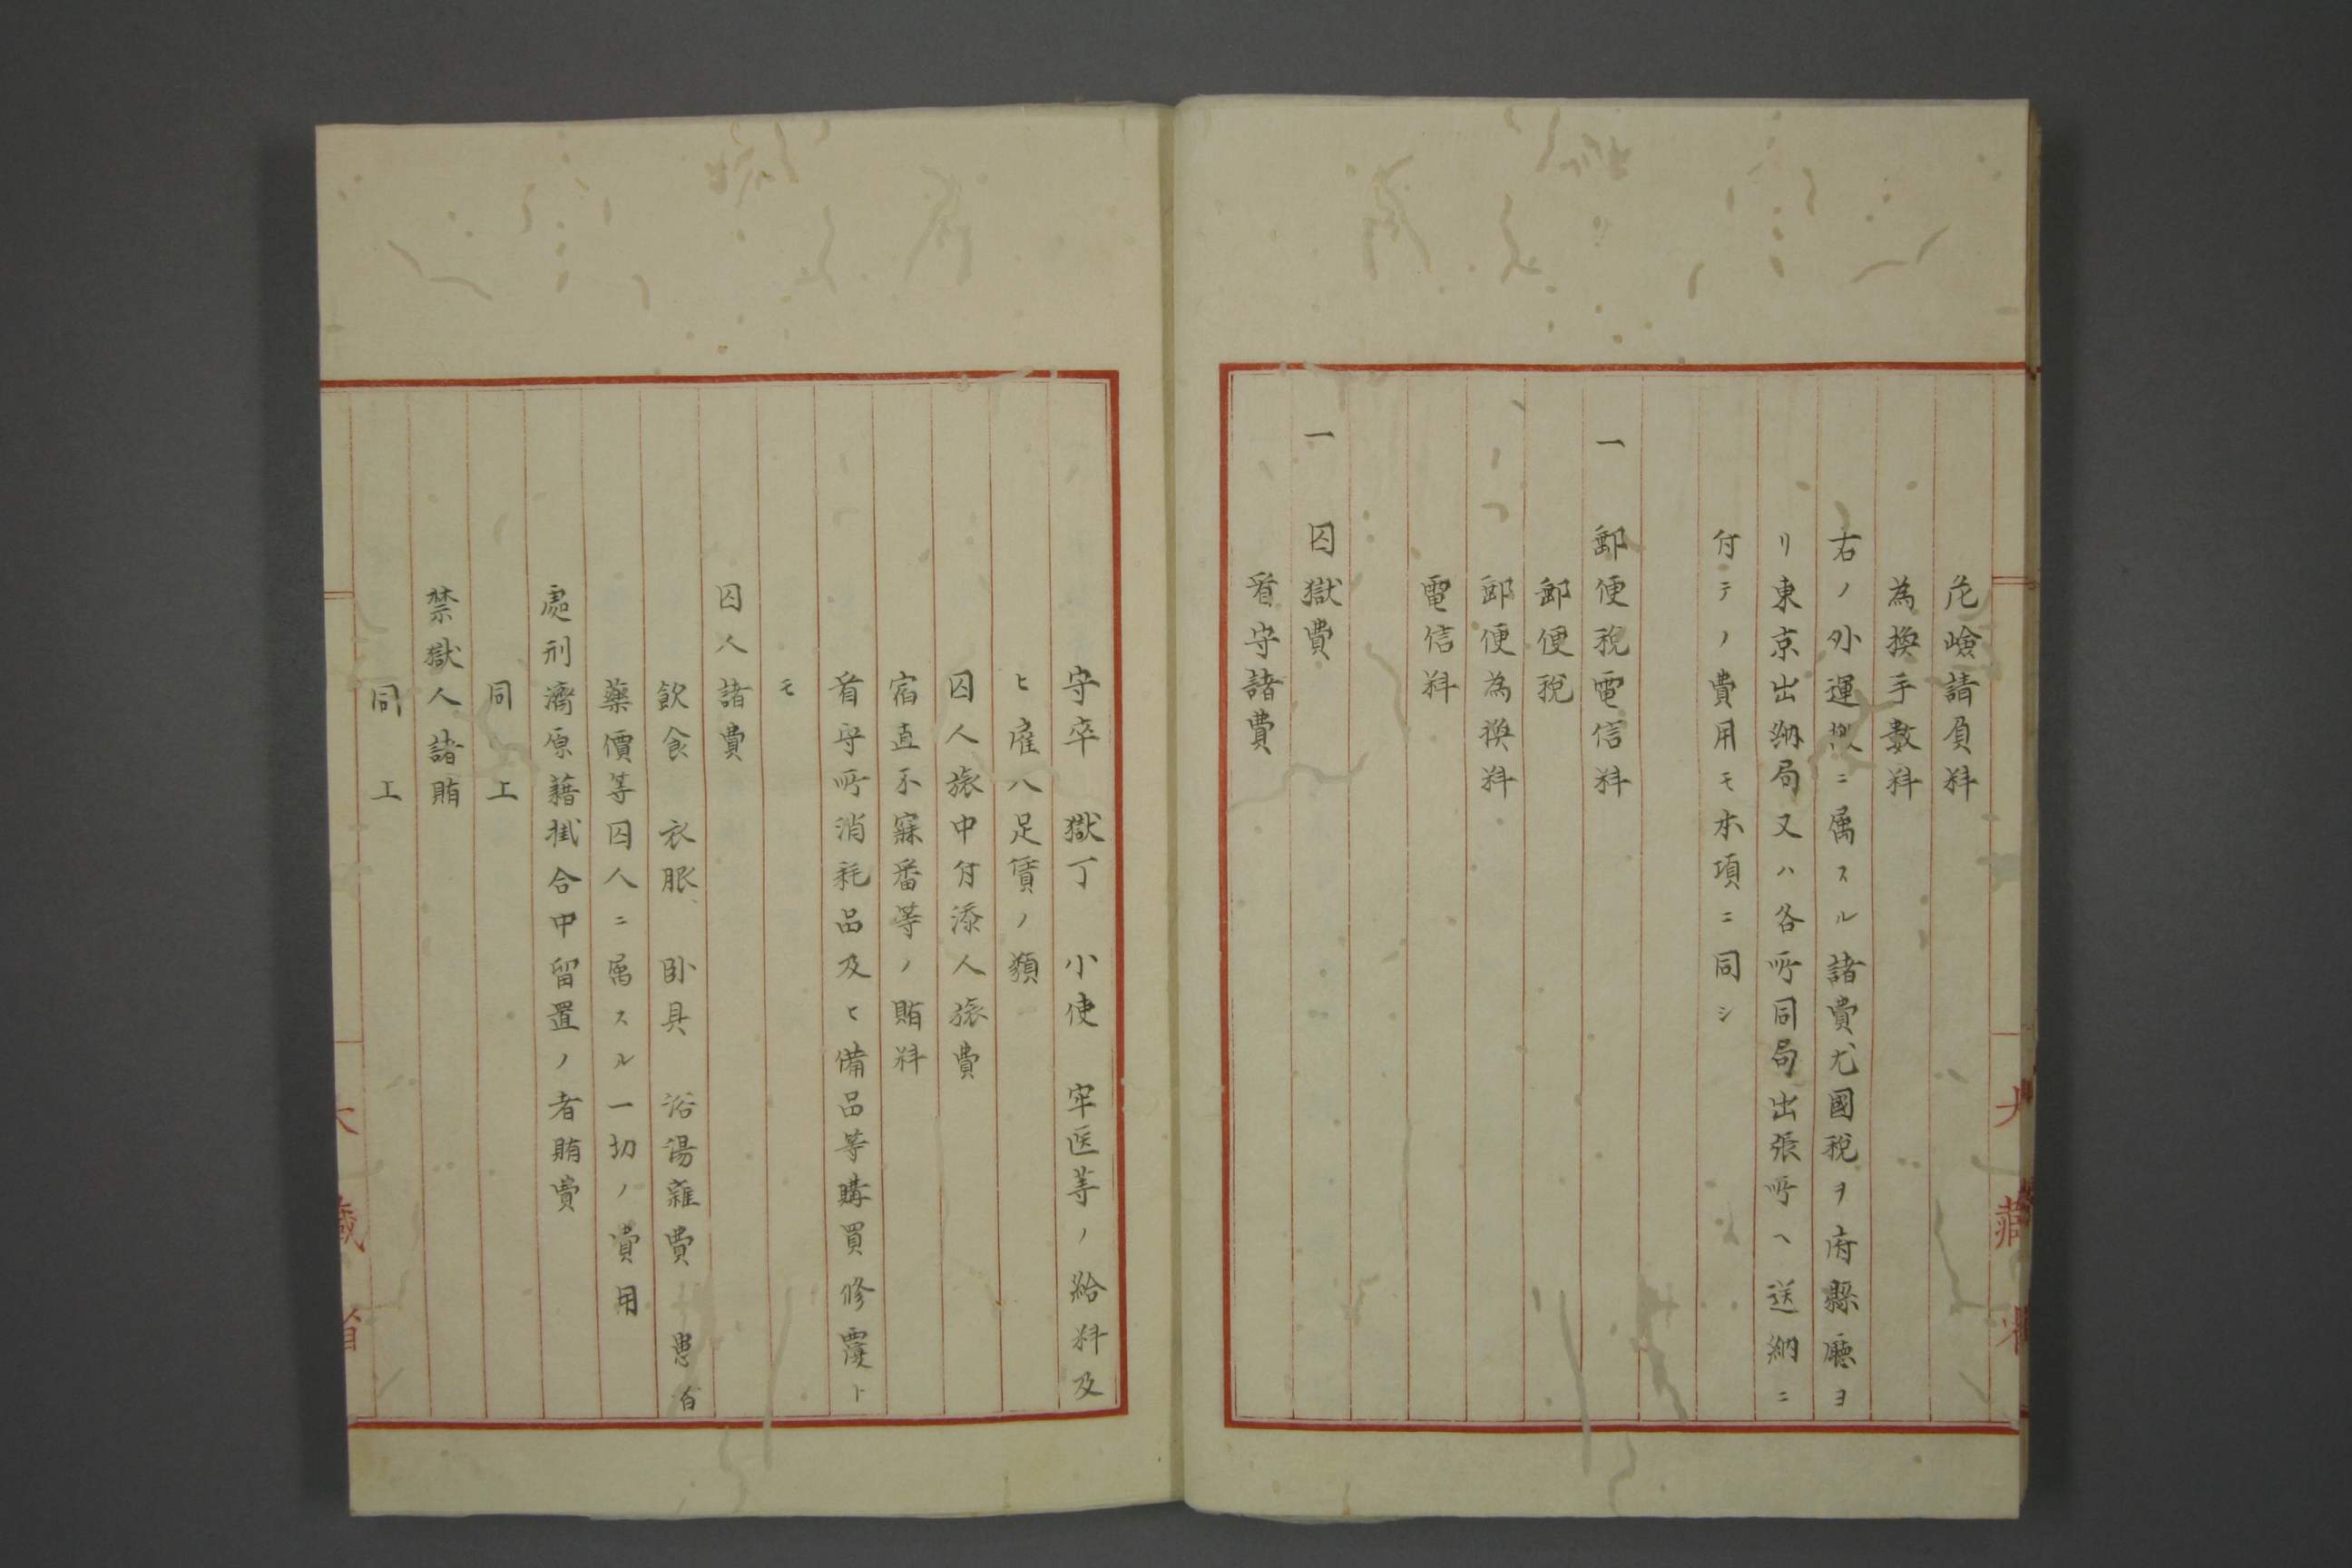 危嶮請負料
為換手數料
右ノ外運搬ニ属スル諸費尤國税ヲ府縣廳ヨ
リ東京出納局又ハ各所同局出張所ヘ送納ニ
付テノ費用モ本項ニ同シ
一 郵便税電信料
郵便税
郵便為換料
電信料
一 囚獄費
看守諸費
大藏省
守卒 獄丁 小使 牢医等ノ給料及
ヒ雇人足賃ノ類
囚人旅中付添人旅費
宿直不寐番等ノ賄料
看守所消耗品及ヒ備品等購買修覆ト
モ
囚人諸費
飲食 衣服 臥具 浴湯雜費 患者
藥價等囚人ニ属スル一切ノ費用
處刑濟原藉掛合中留置ノ者賄費
同上
禁獄人諸賄
同上
大藏省